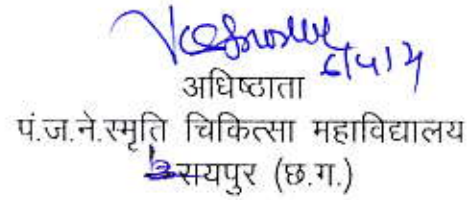 6/4/17
अधिष्ठाता
पं.ज.ने.स्मृति चिकित्सा महाविद्यालय
रायपुर (छ.ग.)